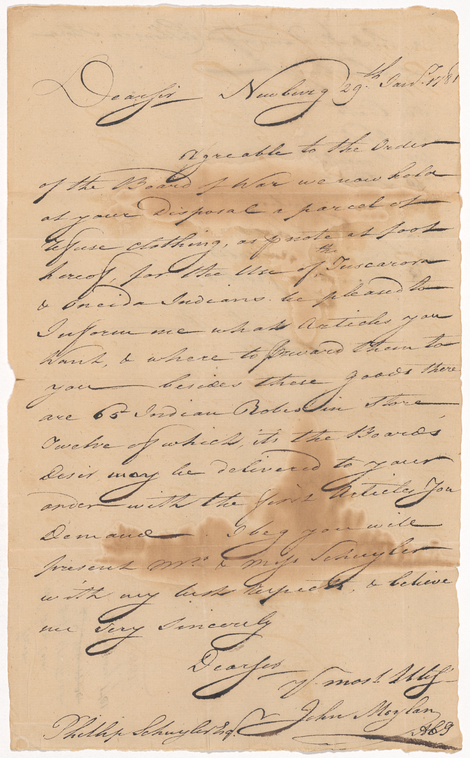 Dear Sir Newburg 29th Jany. 1781
Agreable to the Order
of the Board of War we now hold
at your Disposal a parcel of
refuse clothing, as p note at foot
hereof, for the Use of the Tuscarora
& Oneida Indians. be pleased to
Inform me what Articles you
want, & where to forward them to
you besides these goods there
are 65 Indian Robes in Store
Twelve of which, its the Boards
desir may be delivered to your
order with the first Articles You
Demand. I beg you will
present Mrs. & Miss Schuyler
with my best respects, & believe
me Very Sincerely
Dear Sir
Yr. most
John Moylan
Phillip Schuyler Esq. ACG